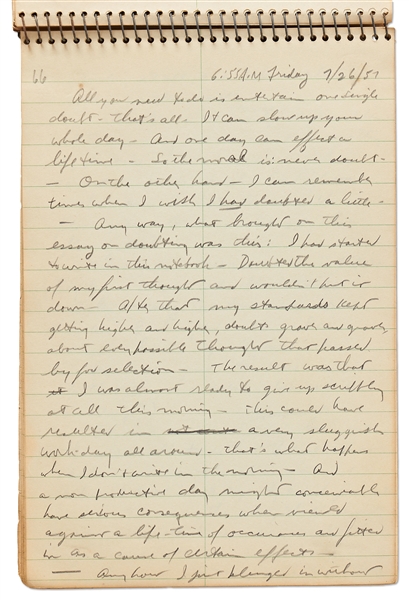 66
6:55 A.M Friday 7/26/57
All you need to do is entertain one single
doubt - that's all - It can slow up your
whole day - And one day can effect a
life time - So the moral is never doubt -
- On the other hand - I can remember
times when I wish I had doubted a little -
- Any way, what brought on this
essay on doubting was this: I had started
to write in this notebook - Doubted the value
of my first thought and wouldn't put it
down - After that my standards kept
getting higher and higher, doubts graver and graver
about every possible thought that passed
by for selection - The result was that
I was almost ready to give up scribbling
at all this morning - This could have
resulted in a very sluggish
work-day all around - that's what happens
when I don't write in the morning - And
a non productive day might conceivably
have serious consequences when viewed
against a life-time of occurances and fitted
in as a cause of certain effects -
- Anyhow I just plunged in without